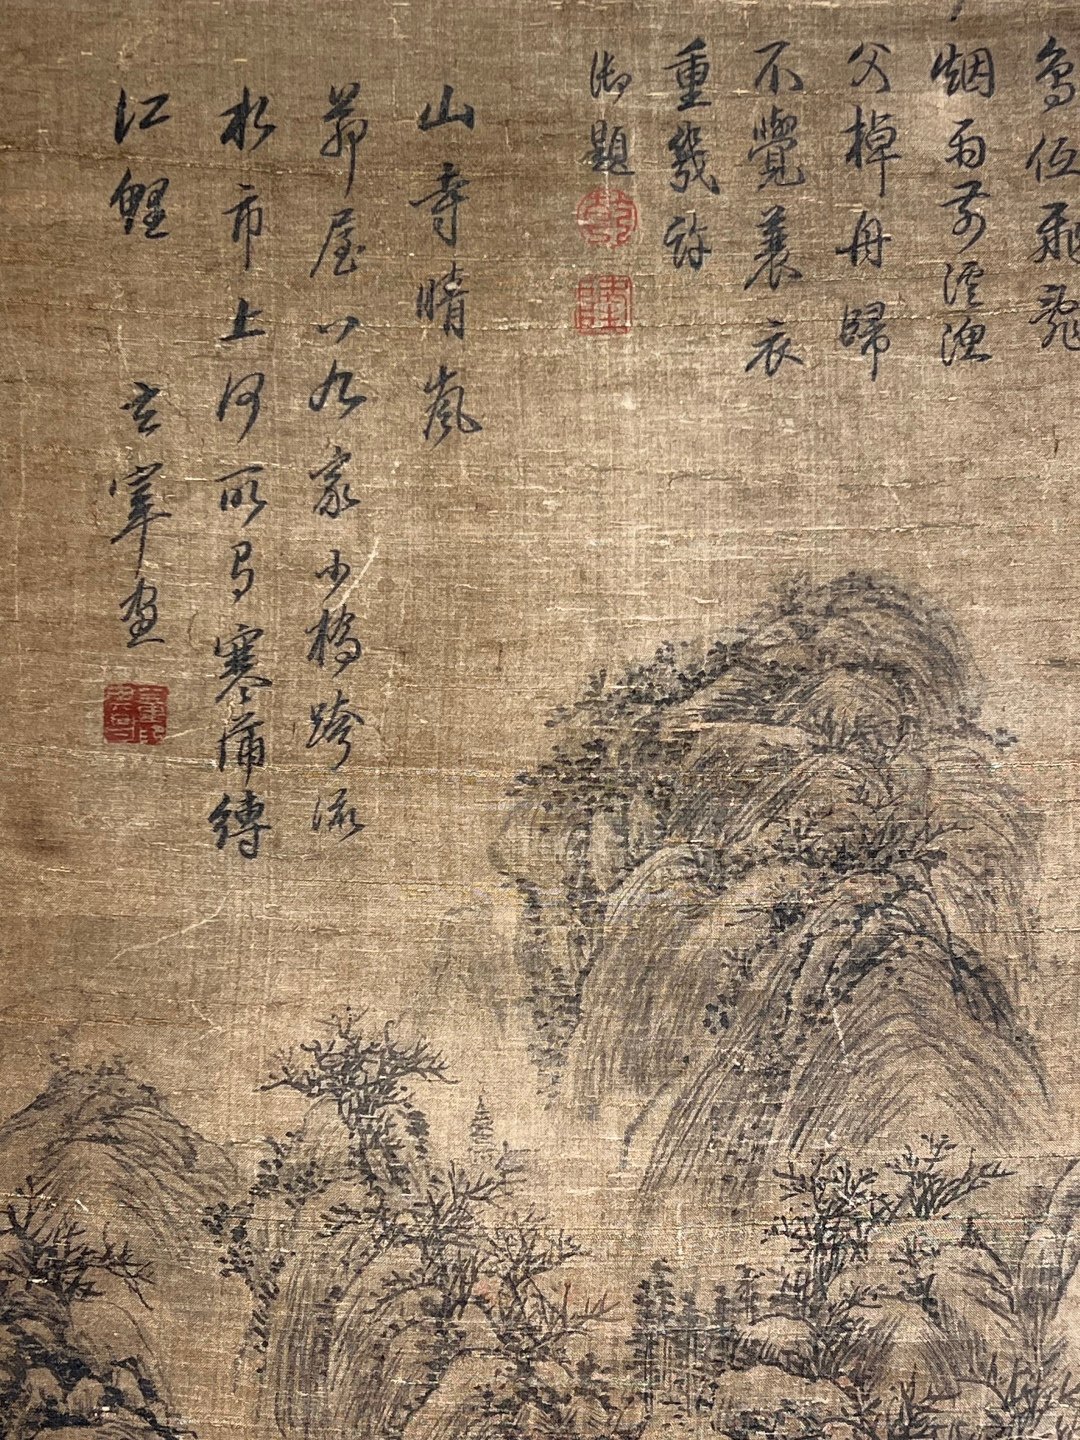 鳥低飛
烟雨前溪漁
父棹舟歸
不覺蓑衣
重幾許
御題
乾
隆
山寺晴嵐
茆屋八九家小橋跨流
水市上何所有寒蒲縛
江鯉
玄宰画